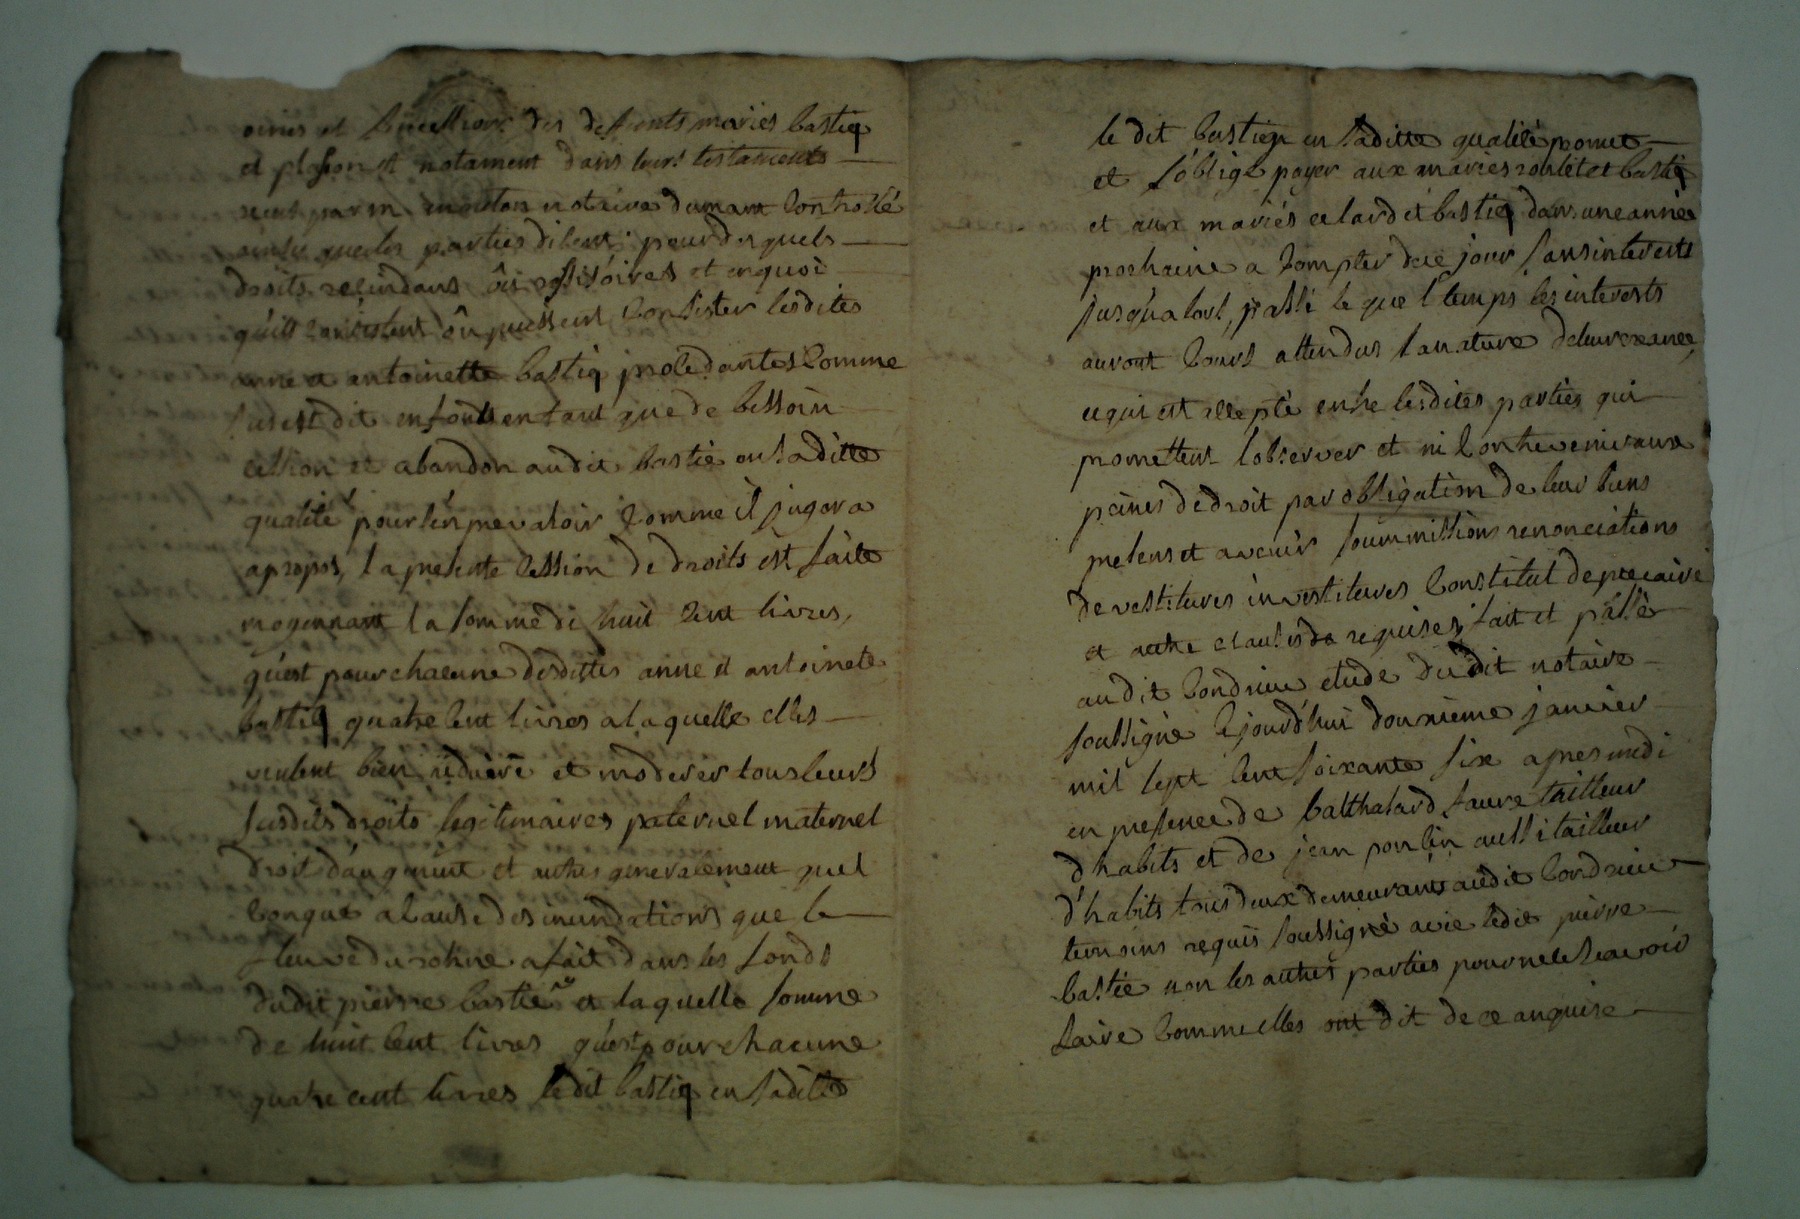 oiries et successions des defunts mariés bastiq
et plasson et notament dans leurs testaments
reçus par m notaire controllé
ainsy que les parties disent pour desquels
droits rescindans ôu rescisoires et en quoi
qu'ils consistent ôu puissent consister lesdites
anne et antoinette bastiq procedantes comme
sus est dit en font en tant que de bessoin
cession et abandon audit bastie en saditte
qualité pour s'en prevaloir comme il jugera
apropos, la presente cession de droits est faite
moyennant la somme de huit cent livres,
qu'est pour chacune desdittes anne et antoinete
bastiq quatre cent livres a laquelle elles
veulent bien reduire et moderer tous leurs
susdits droits legitimaires paternel maternel
droit d'augment et autres generalement quel
conque a cause des inundations que le
fleuve du rohne a fait dans les fonds
dudit pierre bastie et laquelle somme
de huit cent livres qu'est pour chacune
quatre cent livres ledit bastiq en saditte
le dit bastiq en saditte qualité promet
et s'oblige payer aux mariés et bastiq
et aux mariés celard et bastiq dans une année
prochaine a compter de ce jour sans interests
jusqu'alors, passé le quel temps les interests
auront cours attendus la nature de leur creance,
ce qui est accepté entre lesdites parties qui
promettent l'observer et ni contrevenir aux
peines de droit par obligation de leur biens
presens et avenir soummissions renonciations
devestitures investitures constitut de precaire
et autre clauses de requises, fait et passé
audit Condrieu etude dudit notaire
soussigné cejourd'hui douzieme janvier
mil sept cent soixante six apres midi
en presence de balthasard faure tailleur
d'habits et de jean poulin aussi tailleur
d'habits tous deux demeurants audit Condrieu
temoins requis soussigné avec ledit pierre
bastie non les autres parties pour ne le scavoir
faire comme elles ont dit de ce enquise